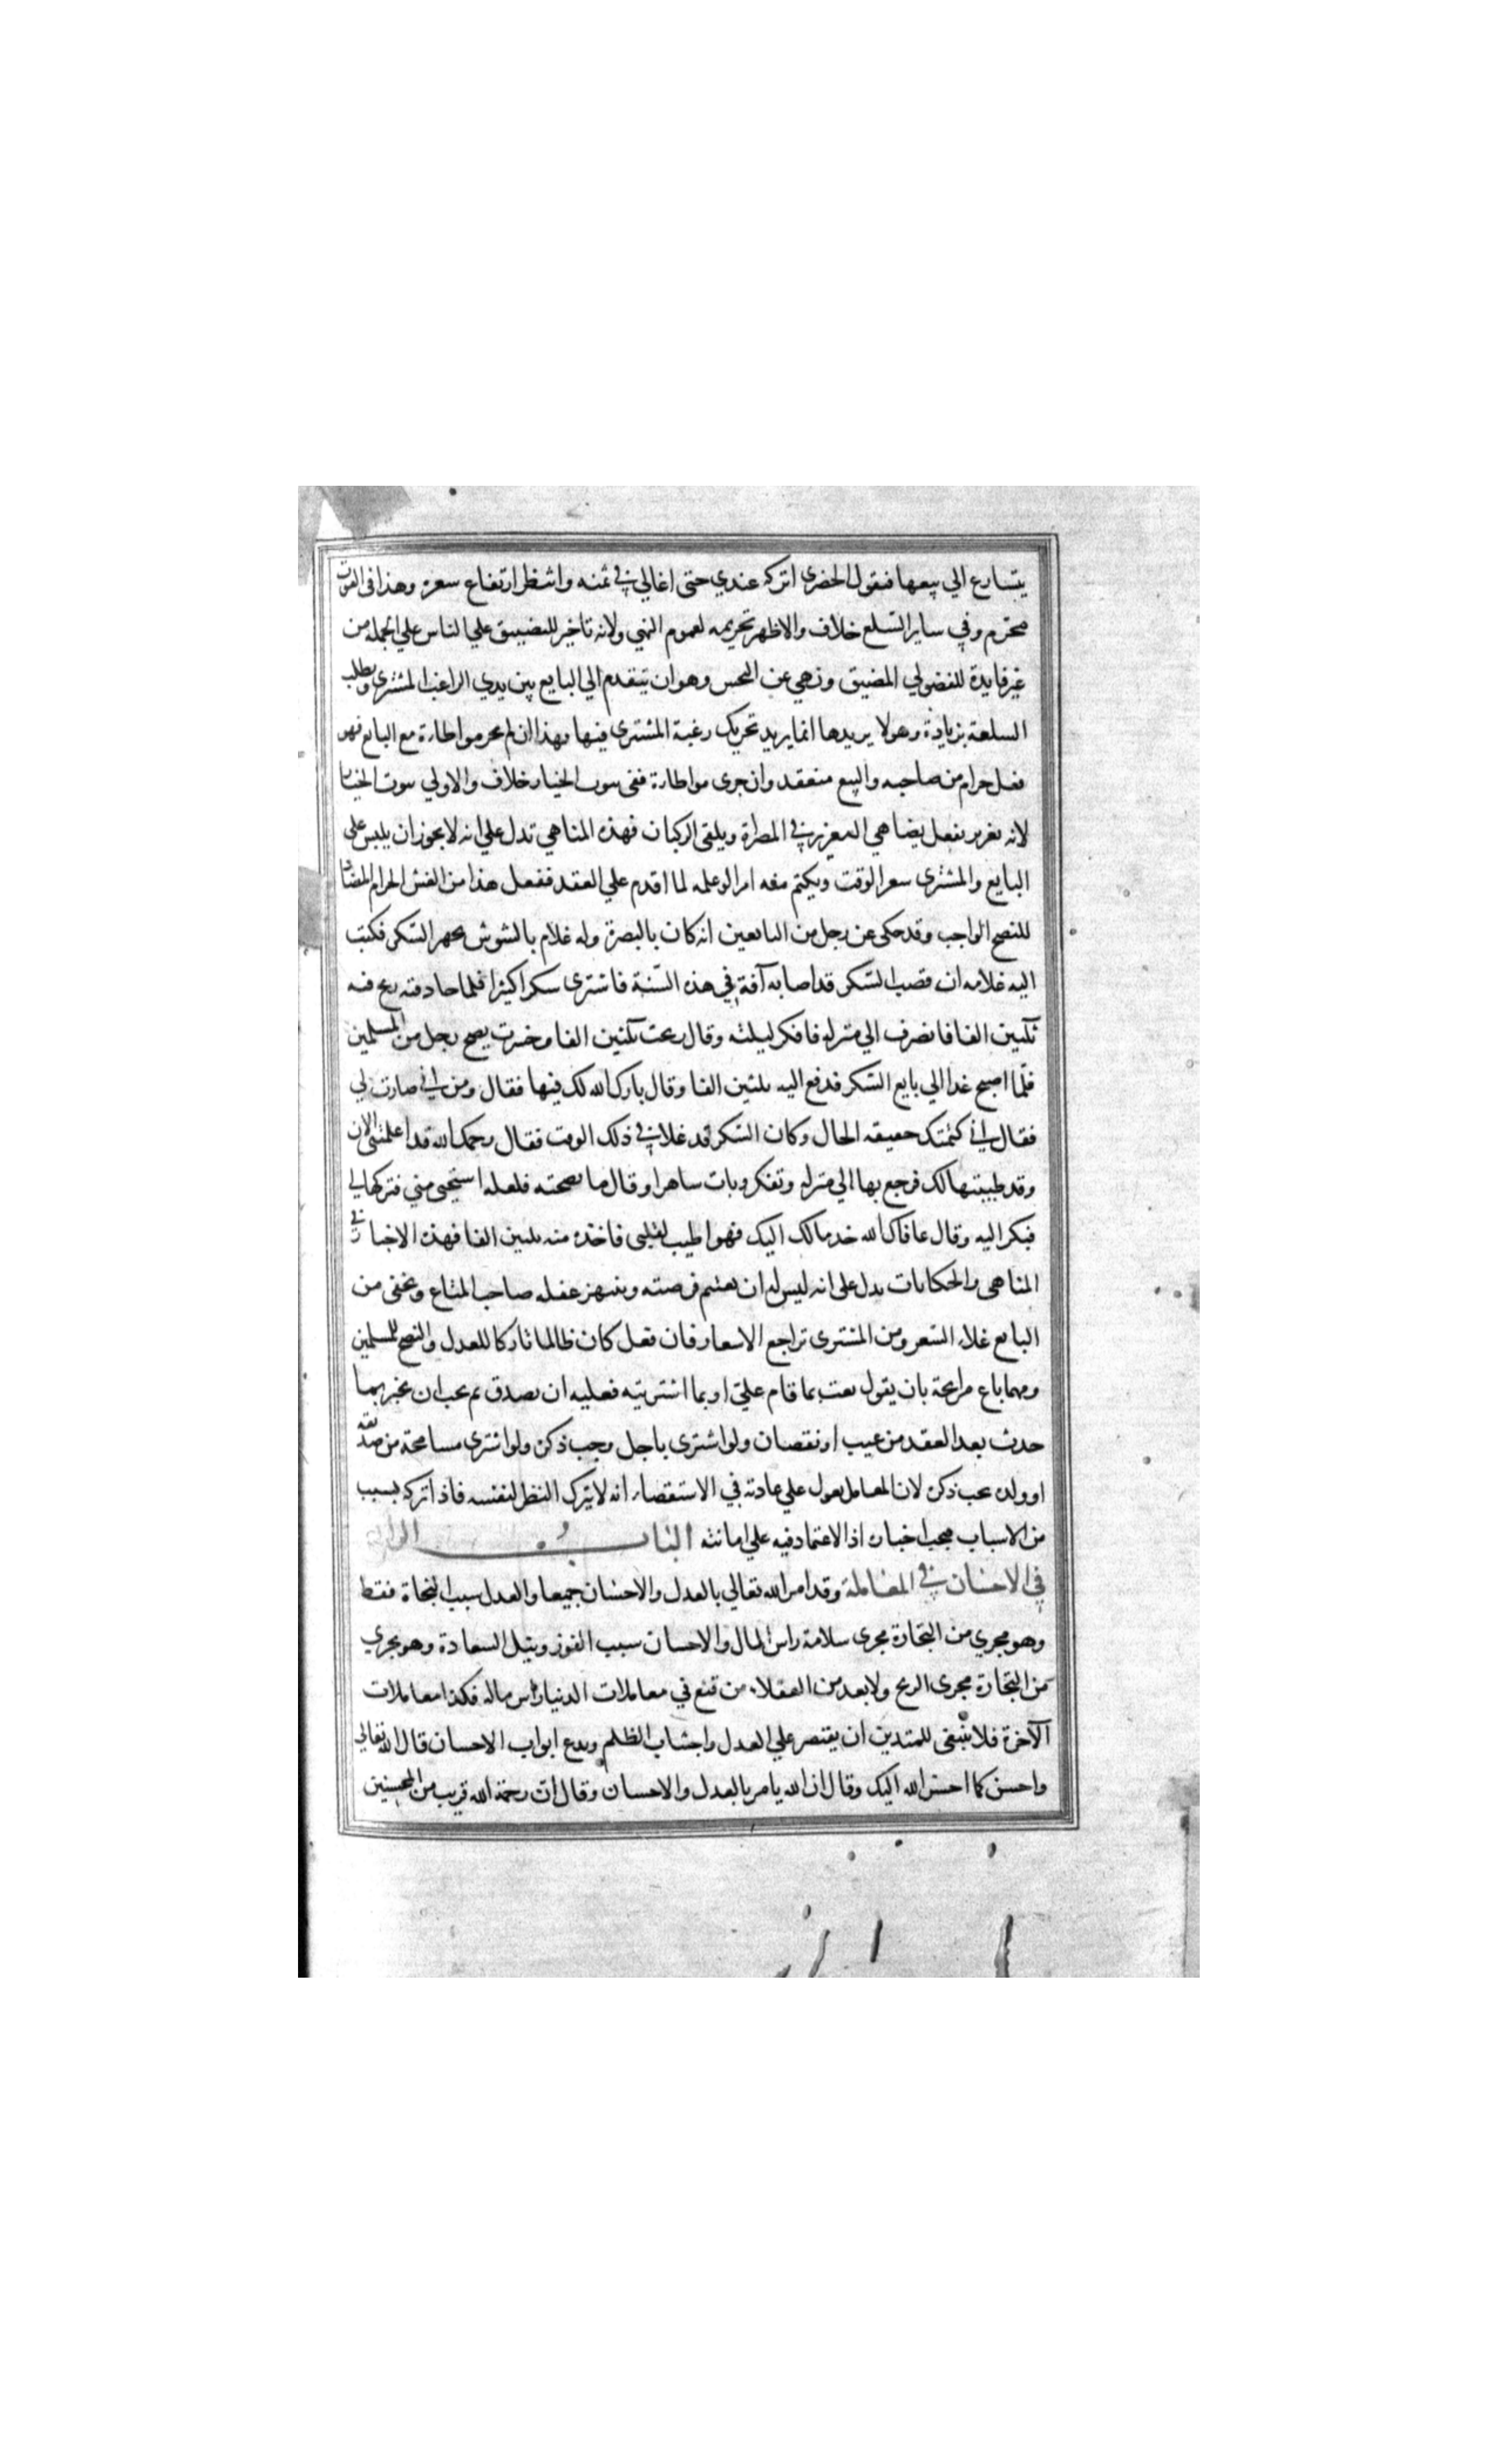 يتسارع الي بيعها فيقول الحضرى اتركه عندي حتى اغالي في ثمنه وانتظر ارتفاع سعره وهذا فى القوت
محرم وفي ساير السلع خلاف والاظهر تحريمه لعموم النهي ولانه تاخير للتضييق علي الناس علي الجملة من
غير فايدة للفضولي المضيق ونهي عن النجس وهو ان يتقدم الي البايع بين يدي الراغب المشترى ويطلب
السلعة بزيادة وهو لا يريدها انما يريد تحريك رغبة المشترى فيها وهذا ان لم يجر مواطاة مع البايع فهو
فعل حرام من صاحبه والبيع منعقد وان جرى مواطاة ففى ثبوت الخيار خلاف والاولي ثبوت الخيار
لانه تغرير بفعل يضاهي التعزير في المصراة وتلقى الركبان فهذه المناهي تدل علي انه لا يجوز ان يلبس على
البايع والمشترى سعر الوقت ويكتم منه امرا لو علمه لما اقدم علي العقد ففعل هذا من الغش الحرام المضاد
للنصح الواجب وقد حكى عن رجل من التابعين انه كان بالبصرة وله غلام بالسوس يجهز السكر فكتب
اليه غلامه ان قصب السكر قد اصابه آفة في هذه السنة فاشترى سكرا كثيرا فلما جا وقته ربح فيه
ثلثين الفا فانصرف الي منزله فافكر ليلته وقال ربحت ثلثين الفا وخسرت نصح رجل من المسلمين
فلما اصبح غدا الي بايع السكر فدفع اليه ثلثين الفا وقال بارك الله لك فيها فقال ومن اين صارت لي
فقال اني كتمتك حقيقة الحال وكان السكر قد غلا في ذلك الوقت فقال رحمك الله قد اعلمتنى الان
وقد طيبتها لك فرجع بها الي منزله وتفكر وبات ساهرا وقال ما نصحته فلعله استحيى مني فتركها لي
فبكر اليه وقال عافاك الله خذ مالك اليك فهو اطيب لقلبى فاخذه منه ثلثين الفا فهذه الاخبار في
المناهى والحكايات تدل على انه ليس له ان يغتنم فرصته وينتهز غفلة صاحب المتاع ويخفى من
البايع غلاء السعر ومن المشترى تراجع الاسعار فان فعل كان ظالما تاركا للعدل والنصح للمسلمين
ومهما باع مرابحة بان يقول بعت بما قام علي او بما اشتريته فعليه ان يصدق ثم يجب ان يخبر بما
حدث بعد العقد من عيب او نقصان ولو اشترى باجل وجب ذكره ولو اشترى مسامحة من صديقه
او ولده يجب ذكره لان المعامل يعول علي عادته في الاستقصاء انه لا يترك النظر لنفسه فاذا تركه بسبب
من الاسباب فيجب اخباره اذ الاعتماد فيه علي امانته الباب الرابع
في الاحسان في المعاملة وقد امر الله تعالي بالعدل والاحسان جميعا والعدل سبب النجاة فقط
وهو يجري من التجارة مجرى سلامة راس المال والاحسان سبب الفوز ونيل السعادة وهو يجري
من التجارة مجرى الربح ولا يعد من العقلاء من قنع في معاملات الدنيا براس ماله فكذا معاملات
الآخرة فلا ينبغى للمتدين ان يقتصر علي العدل واجتناب الظلم ويدع ابواب الاحسان قال الله تعالي
واحسن كما احسن الله اليك وقال ان الله يامر بالعدل والاحسان وقال ان رحمة الله قريب من المحسنين